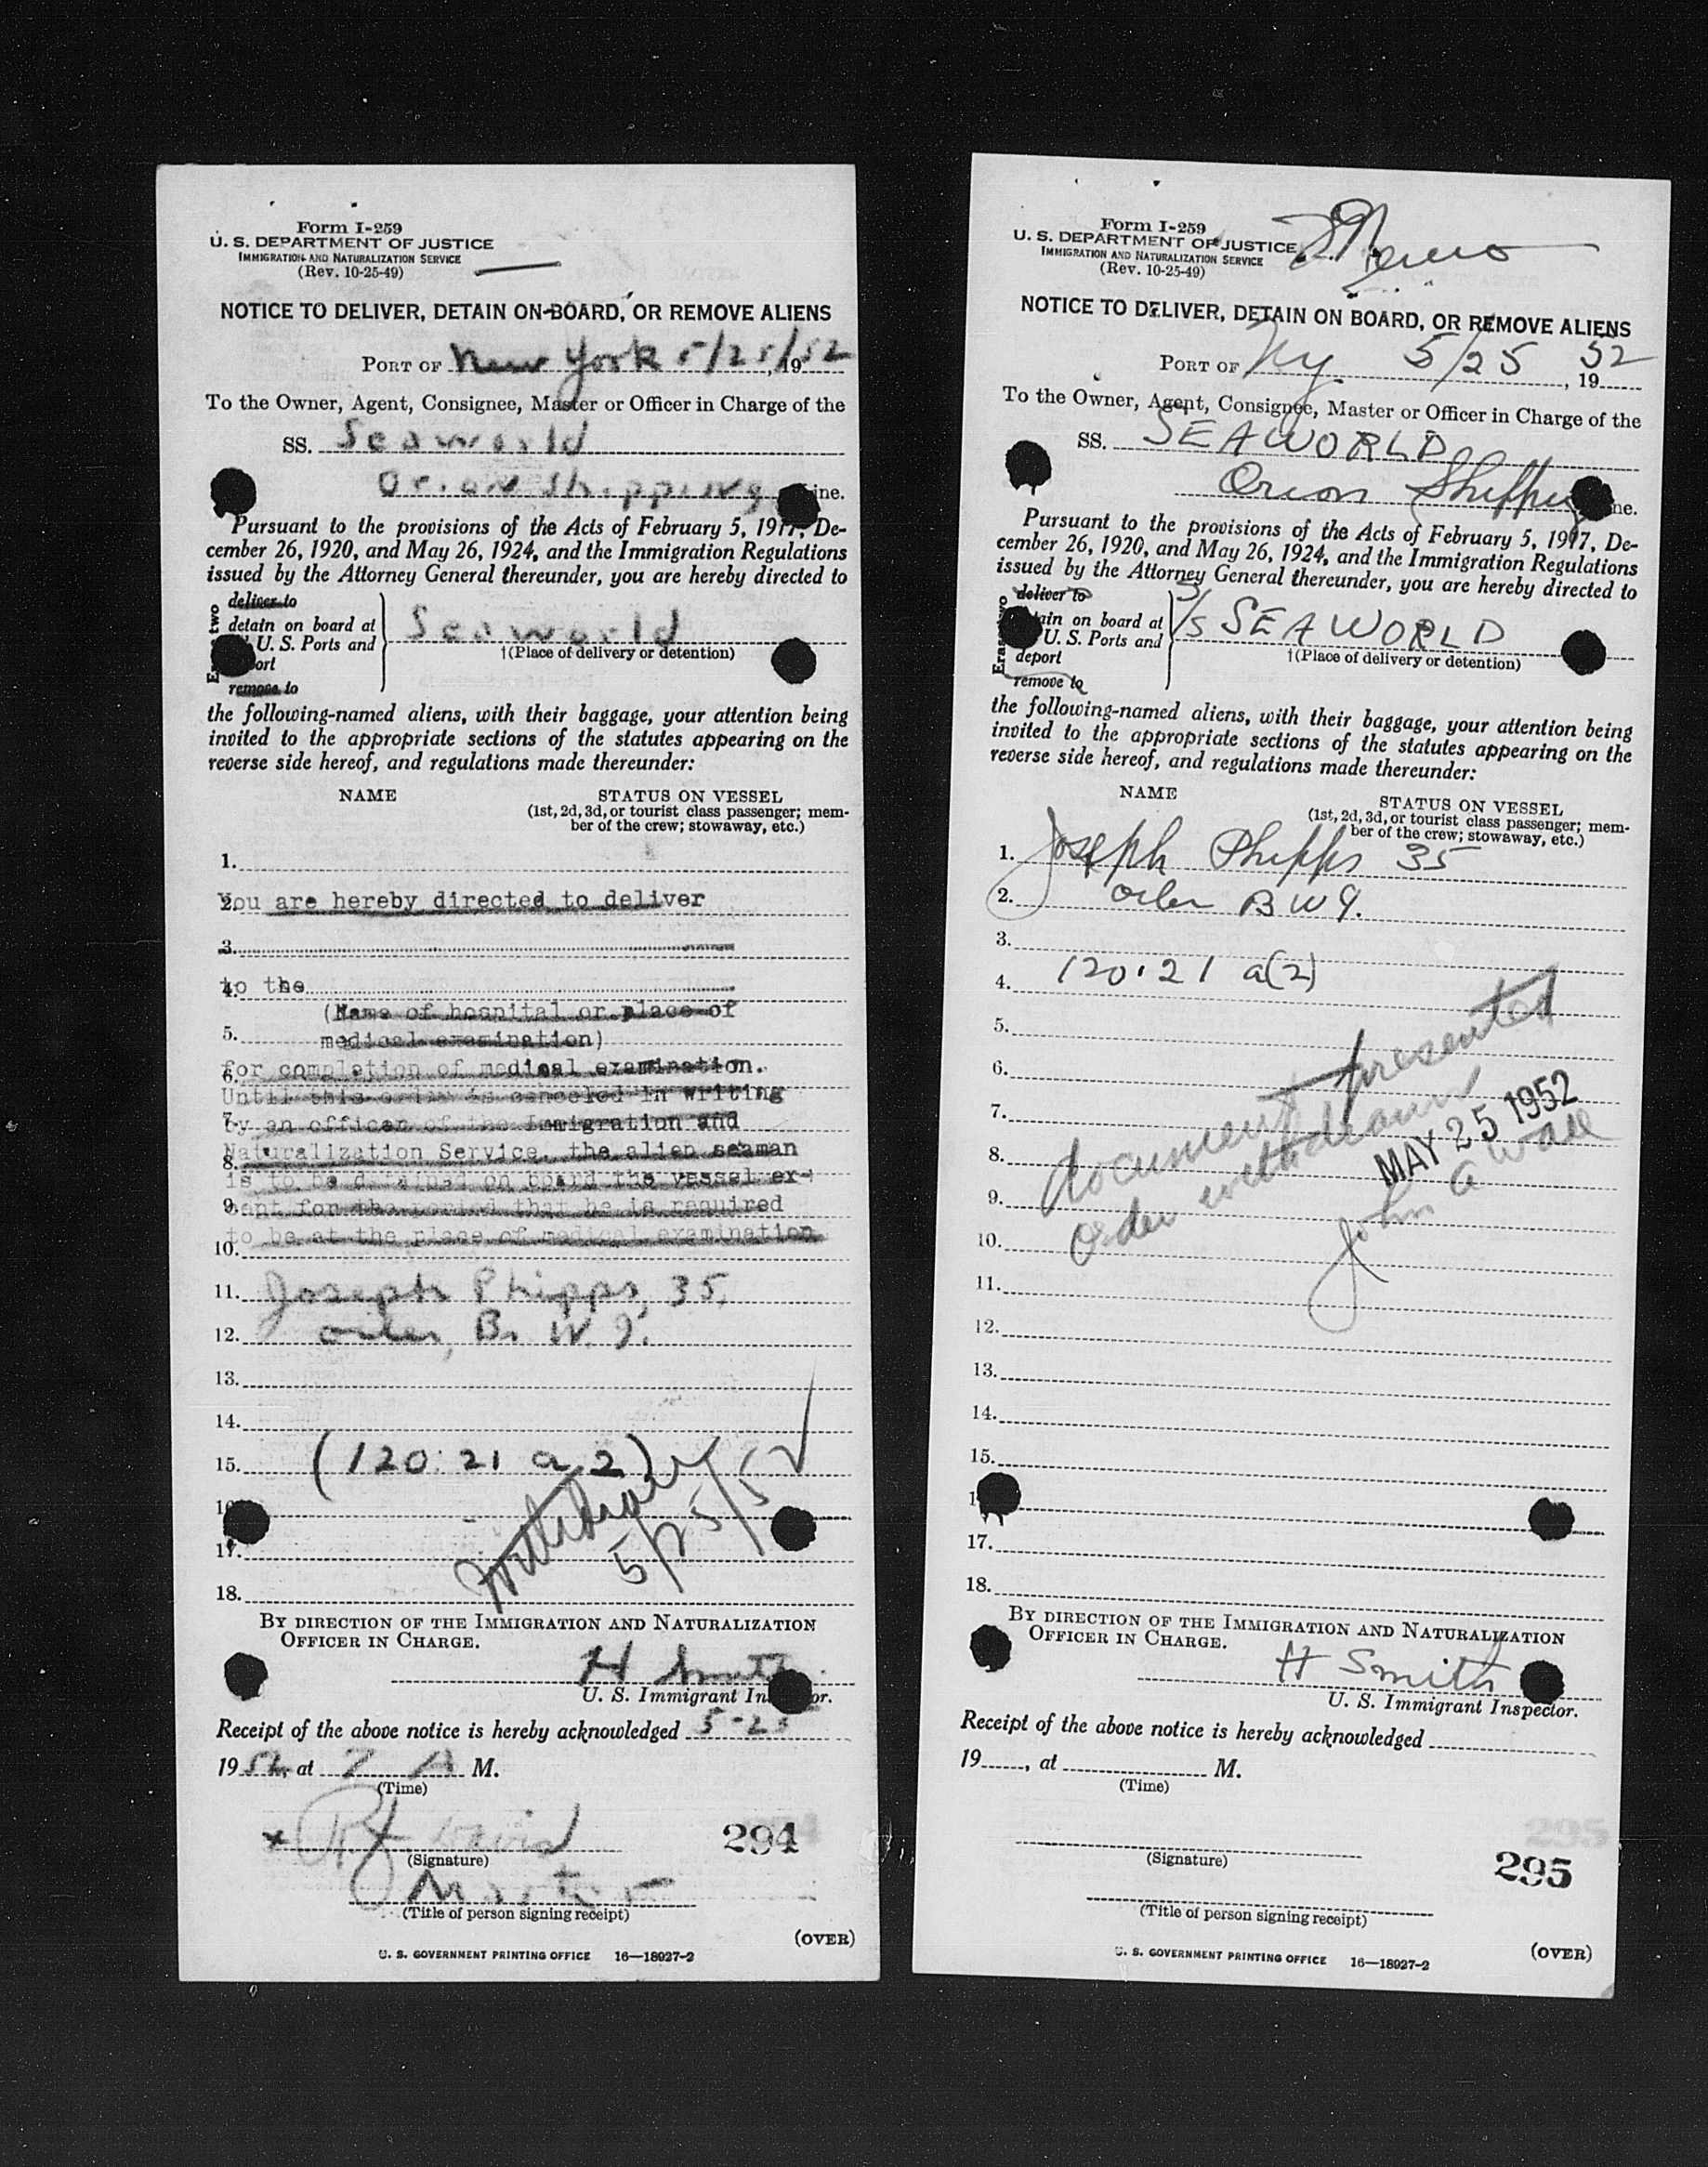 Form I-259
U. S. DEPARTMENT OF JUSTICE
IMMIGRATION AND NATURALIZATION SERVICE
(Rev. 10-25-49)
NOTICE TO DELIVER, DETAIN ON BOARD, OR REMOVE ALIENS
PORT OF New York 5/25/, 1952
To the Owner, Agent, Consignee, Master or Officer in Charge of the
SS. Seaworld
Orion Shipping ine.
Pursuant to the provisions of the Acts of February 5, 1917, De-
cember 26, 1920, and May 26, 1924, and the Immigration Regulations
issued by the Attorney General thereunder, you are hereby directed to
deliver to
detain on board at
U. S. Ports and
ort
remove to
two
Seaworld
†(Place of delivery or detention)
the following-named aliens, with their baggage, your attention being
invited to the appropriate sections of the statutes appearing on the
reverse side hereof, and regulations made thereunder:
NAME STATUS ON VESSEL
(1st, 2d, 3d, or tourist class passenger; mem-
ber of the crew; stowaway, etc.)
1.
2. You are hereby directed to deliver
3.
4. to the
(Name of hospital or place of
5. medical examination)
6. for completion of medical examination.
Until this order is canceled in writing
7. by an officer of the Immigration and
8. Naturalization Service, the alien seaman
is to be detained on board the vessel ex-
9. cept for the period that he is required
10. to be at the place of medical examination
11. Joseph Phipps, 35,
12. oiler, B. W. I.
13.
14.
15. (120:21 a 2)
16
17.
18.
withdrawn
5/25/52
BY DIRECTION OF THE IMMIGRATION AND NATURALIZATION
OFFICER IN CHARGE.
H Smith
U. S. Immigrant In or.
Receipt of the above notice is hereby acknowledged 5-25
1952, at 7 A M.
(Time)
x David
(Signature)
294
Master
(Title of person signing receipt)
(OVER)
U. S. GOVERNMENT PRINTING OFFICE 16—18927-2
Form I-259
U. S. DEPARTMENT OF JUSTICE
IMMIGRATION AND NATURALIZATION SERVICE
(Rev. 10-25-49)
NOTICE TO DELIVER, DETAIN ON BOARD, OR REMOVE ALIENS
PORT OF Ny 5/25, 1952
To the Owner, Agent, Consignee, Master or Officer in Charge of the
SS. SEAWORLD
Orion Shipping ne.
Pursuant to the provisions of the Acts of February 5, 1917, De-
cember 26, 1920, and May 26, 1924, and the Immigration Regulations
issued by the Attorney General thereunder, you are hereby directed to
deliver to
ain on board at
U. S. Ports and
deport
remove to
Eras wo
S/S SEAWORLD
†(Place of delivery or detention)
the following-named aliens, with their baggage, your attention being
invited to the appropriate sections of the statutes appearing on the
reverse side hereof, and regulations made thereunder:
NAME STATUS ON VESSEL
(1st, 2d, 3d, or tourist class passenger; mem-
ber of the crew; stowaway, etc.)
1. Joseph Phipps 35
2. oiler B W I.
3.
4. 120.21 a(2)
5.
6.
7.
8.
9.
10.
document presented
order withdrawn
MAY 25 1952
John a Wall
11.
12.
13.
14.
15.
1
17.
18.
BY DIRECTION OF THE IMMIGRATION AND NATURALIZATION
OFFICER IN CHARGE.
H Smith
U. S. Immigrant Inspector.
Receipt of the above notice is hereby acknowledged
19, at M.
(Time)
(Signature)
295
295
(Title of person signing receipt)
(OVER)
U. S. GOVERNMENT PRINTING OFFICE 16—18927-2